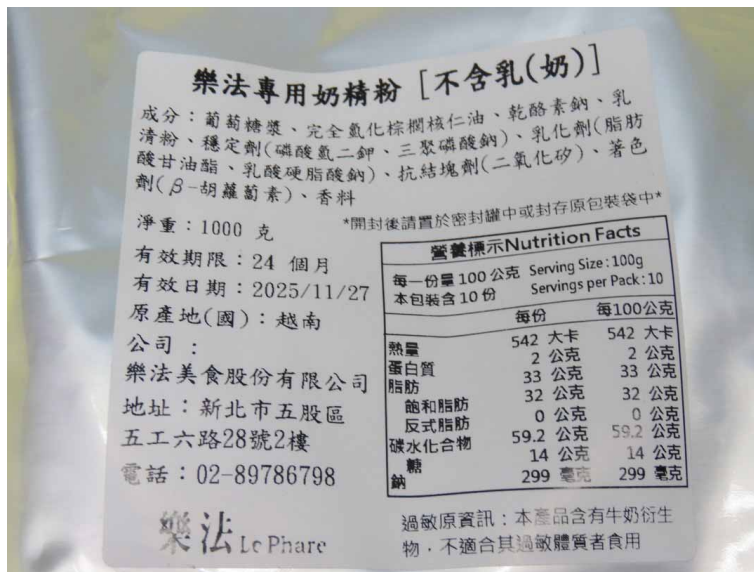 樂法專用奶精粉 [不含乳(奶)]
成分：葡萄糖漿、完全氫化棕櫚核仁油、乾酪素鈉、乳
清粉、穩定劑(磷酸氫二鉀、三聚磷酸鈉)、乳化劑(脂肪
酸甘油酯、乳酸硬脂酸鈉)、抗結塊劑(二氧化矽)、著色
劑(β-胡蘿蔔素)、香料
*開封後請置於密封罐中或封存原包裝袋中*
淨重：1000 克
有效期限：24 個月
有效日期：2025/11/27
原產地(國)：越南
公司 :
樂法美食股份有限公司
地址：新北市五股區
五工六路28號2樓
電話：02-89786798
樂法 Le Phare
營養標示Nutrition Facts
每一份量 100 公克 Serving Size:100g
本包裝含 10 份 Servings per Pack:10
每份 每100公克
熱量 542 大卡 542 大卡
蛋白質 2 公克 2 公克
脂肪 33 公克 33 公克
飽和脂肪 32 公克 32 公克
反式脂肪 0 公克 0 公克
碳水化合物 59.2 公克 59.2 公克
糖 14 公克 14 公克
鈉 299 毫克 299 毫克
過敏原資訊：本產品含有牛奶衍生
物，不適合其過敏體質者食用